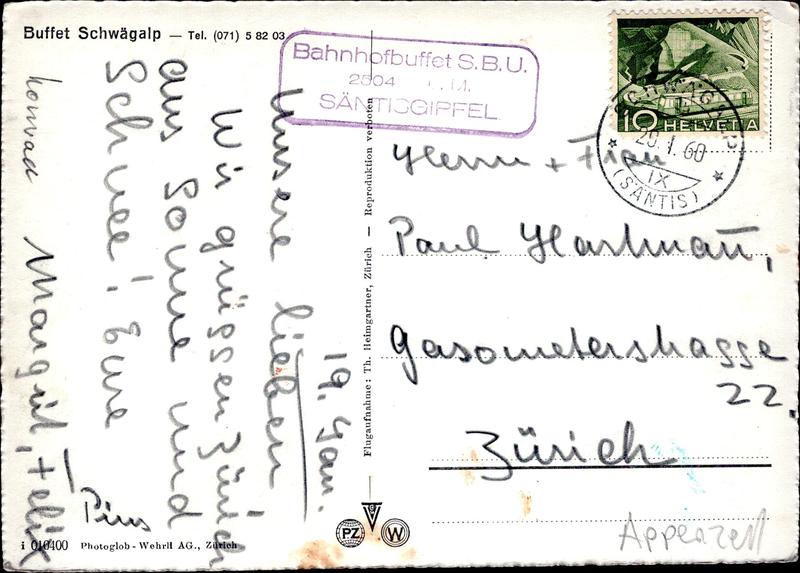 Buffet Schwägalp — Tel. (071) 5 82 03
Bahnhofbuffet S.B.U.
2504 M.
SÄNTISGIPFEL
10 HELVETIA
SCHWÄGALP
20.1.60
IX
(SÄNTIS)
19. Jan.
Unsere lieben
Wir grüssen Zürich
aus Sonne und
Schnee! Eure
Margrit, + Felix
Pius
Konrad
Herrn + Frau
Paul Hartmann,
Gasometerstrasse
22.
Zürich
Appenzell
Flugaufnahme: Th. Heimgartner, Zürich — Reproduktion verboten
i 010400 Photoglob-Wehrli AG., Zürich
PZ
W